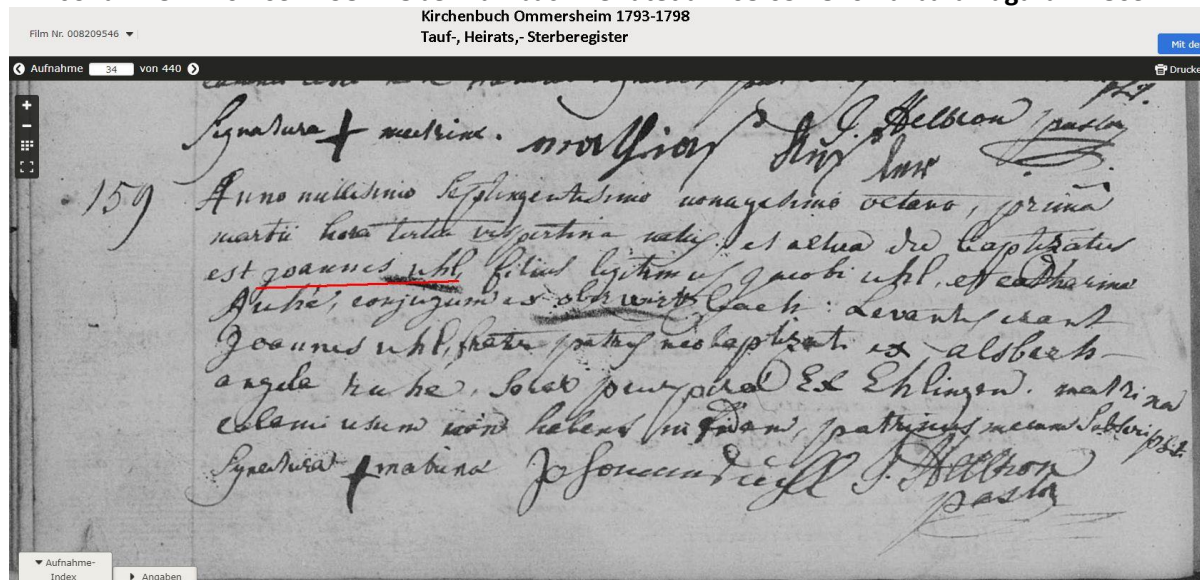 Kirchenbuch Ommersheim 1793-1798
Film Nr. 008209546
Tauf-, Heirats,- Sterberegister
Mit de
Aufnahme 34 von 440
Drucke
Signatura + matrinæ. Mathias J. Hellbron pastor
159 Anno millesimo Septingentesimo nonagesimo octavo, prima
martii hora tertia vespertina natus, et altera die baptizatus
est joannes uhl, filius legitimus jacobi uhl, et catharina
Ruhé, conjugum ex ober wirtzbach. Levantes erant
Joannes uhl, frater patris neobaptizati ex alsbach
angela ruhé, soror puerperæ Ex Ehlingen. matrina
calami usum non habens, patrinus mecum Subscripsit.
Signatura + matrina J. Hellbron
pastor
Aufnahme-
Index
Angaben